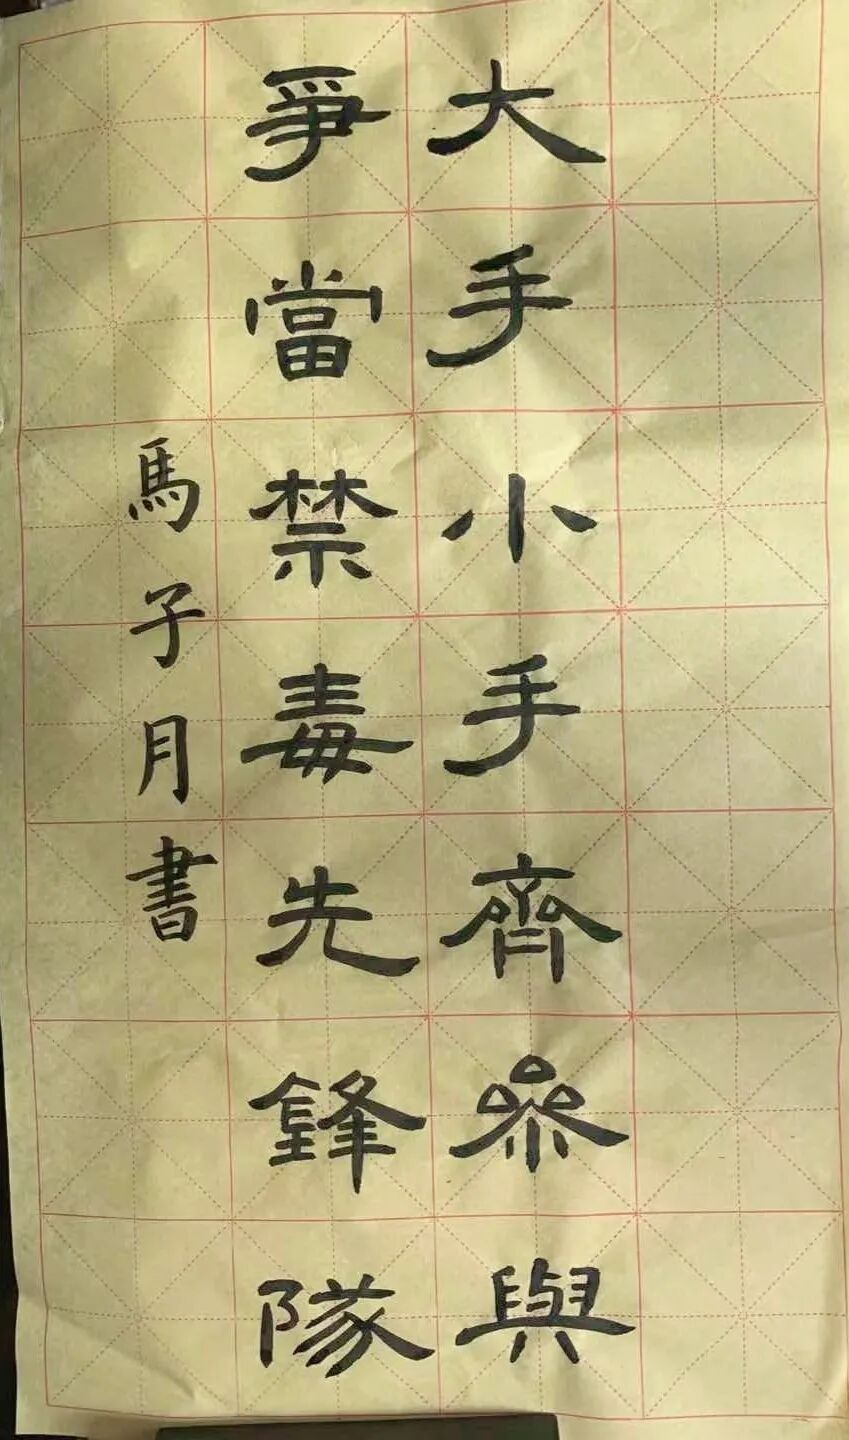 大手小手齊參與
爭當禁毒先鋒隊
馬子月書